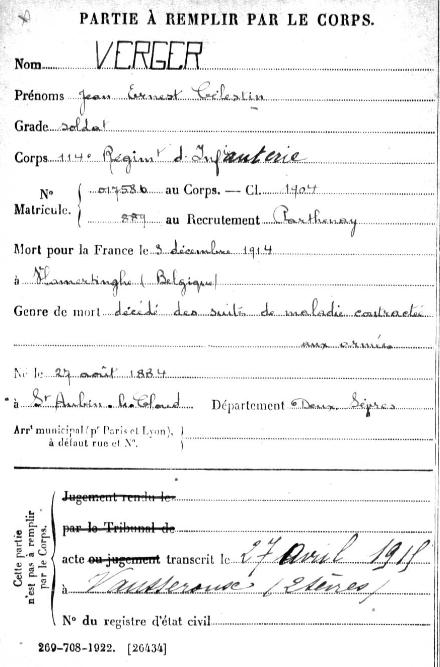 PARTIE À REMPLIR PAR LE CORPS.
Nom VERGER
Prénoms Jean Ernest Célestin
Grade soldat
Corps 114e Regimt d'Infanterie
N° Matricule. 017586 au Corps. — Cl. 1904
889 au Recrutement Parthenay
Mort pour la France le 3 décembre 1914
à Vlamertinghe (Belgique)
Genre de mort décédé des suites de maladie contractée
aux armées
Né le 27 août 1884
à St Aubin-le-Cloud Département Deux Sèvres
Arrt municipal (pr Paris et Lyon),
à défaut rue et N°.
Cette partie n'est pas à remplir par le Corps.
Jugement rendu le
par le Tribunal de
acte ou jugement transcrit le 27 avril 1915
à Vausseroux (2 Sèvres)
N° du registre d'état civil
269-708-1922. [26434]